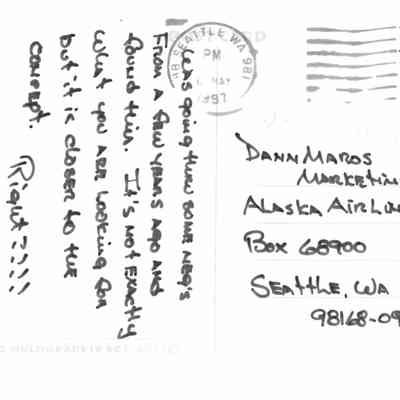 I was going thru some neg's
from a few years ago and
found this. It's not exactly
what you are looking for
but it is closer to the
concept.
Right
SEATTLE WA 981
PM
MAY
1997
Dann Maros
Marketin
Alaska Airlin
Box 68900
Seattle, WA
98168-09